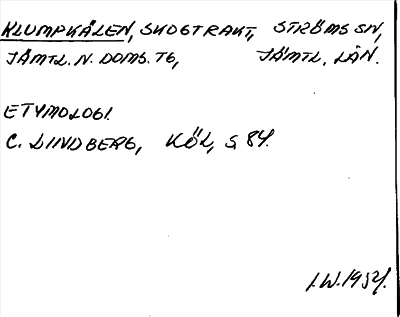 KLUMPKÄLEN, SKOGTRAKT, STRÖMS SN,
JÄMTL. N. DOMS. TG, JÄMTL. LÄN.
ETYMOLOGI.
C. LINDBERG, KÖL, S 84.
I.W. 1954.